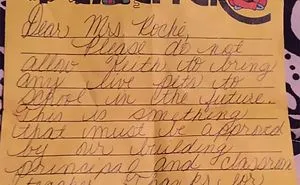 Dear Mrs. Roche,
Please do not
allow Keith to bring
any live pets to
school in the future.
This is something
that must be approved
by our building
principal and classroom
teacher. Thanks for